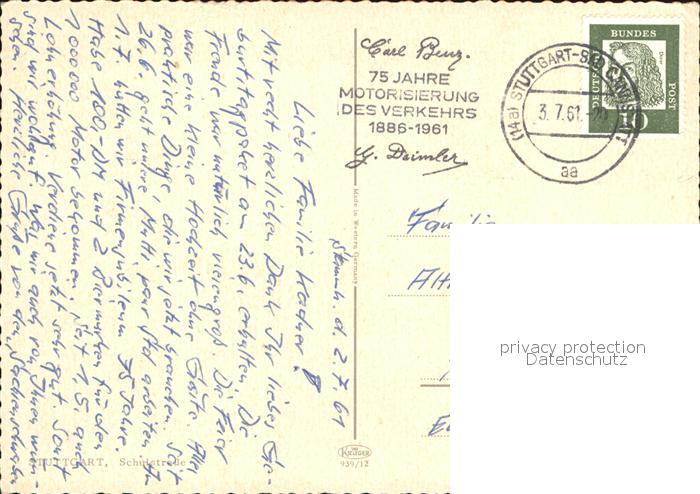 Carl Benz.
75 JAHRE
MOTORISIERUNG
DES VERKEHRS
1886-1961
G. Daimler
(14a) STUTTGART-BAD CANNSTATT
3.7.61.-20
aa
DEUTSCHE
BUNDES
POST
Dürer
10
Stammh. d. 2.7.61
Liebe Familie
Mit recht herzlichem Dank Ihr liebes Ge-
burtstagspaket am 23.6. erhalten. Die
Freude war natürlich riesengroß. Die Feier
war eine kleine Hochzeit ohne Gäste. Alles
praktische Dinge, die wir jetzt brauchen. Seit
26.6. geht unsere Mutti paar Std arbeiten. Am
1.7. hatten wir Firmenjubiläum 75 Jahre.
Habe 100,-DM und 2 Biermarken für den
1000000 Motor bekommen. Seit 1.5. auch
Lohnerhöhung. Verdiene jetzt sehr gut. Sonst
sind wir wohlauf was wir auch von Ihnen wün-
schen. Herzliche Grüße von den
Made in Western Germany
Familie
privacy protection
Datenschutz
KRÜGER
939/12
STUTTGART, Schulstraße